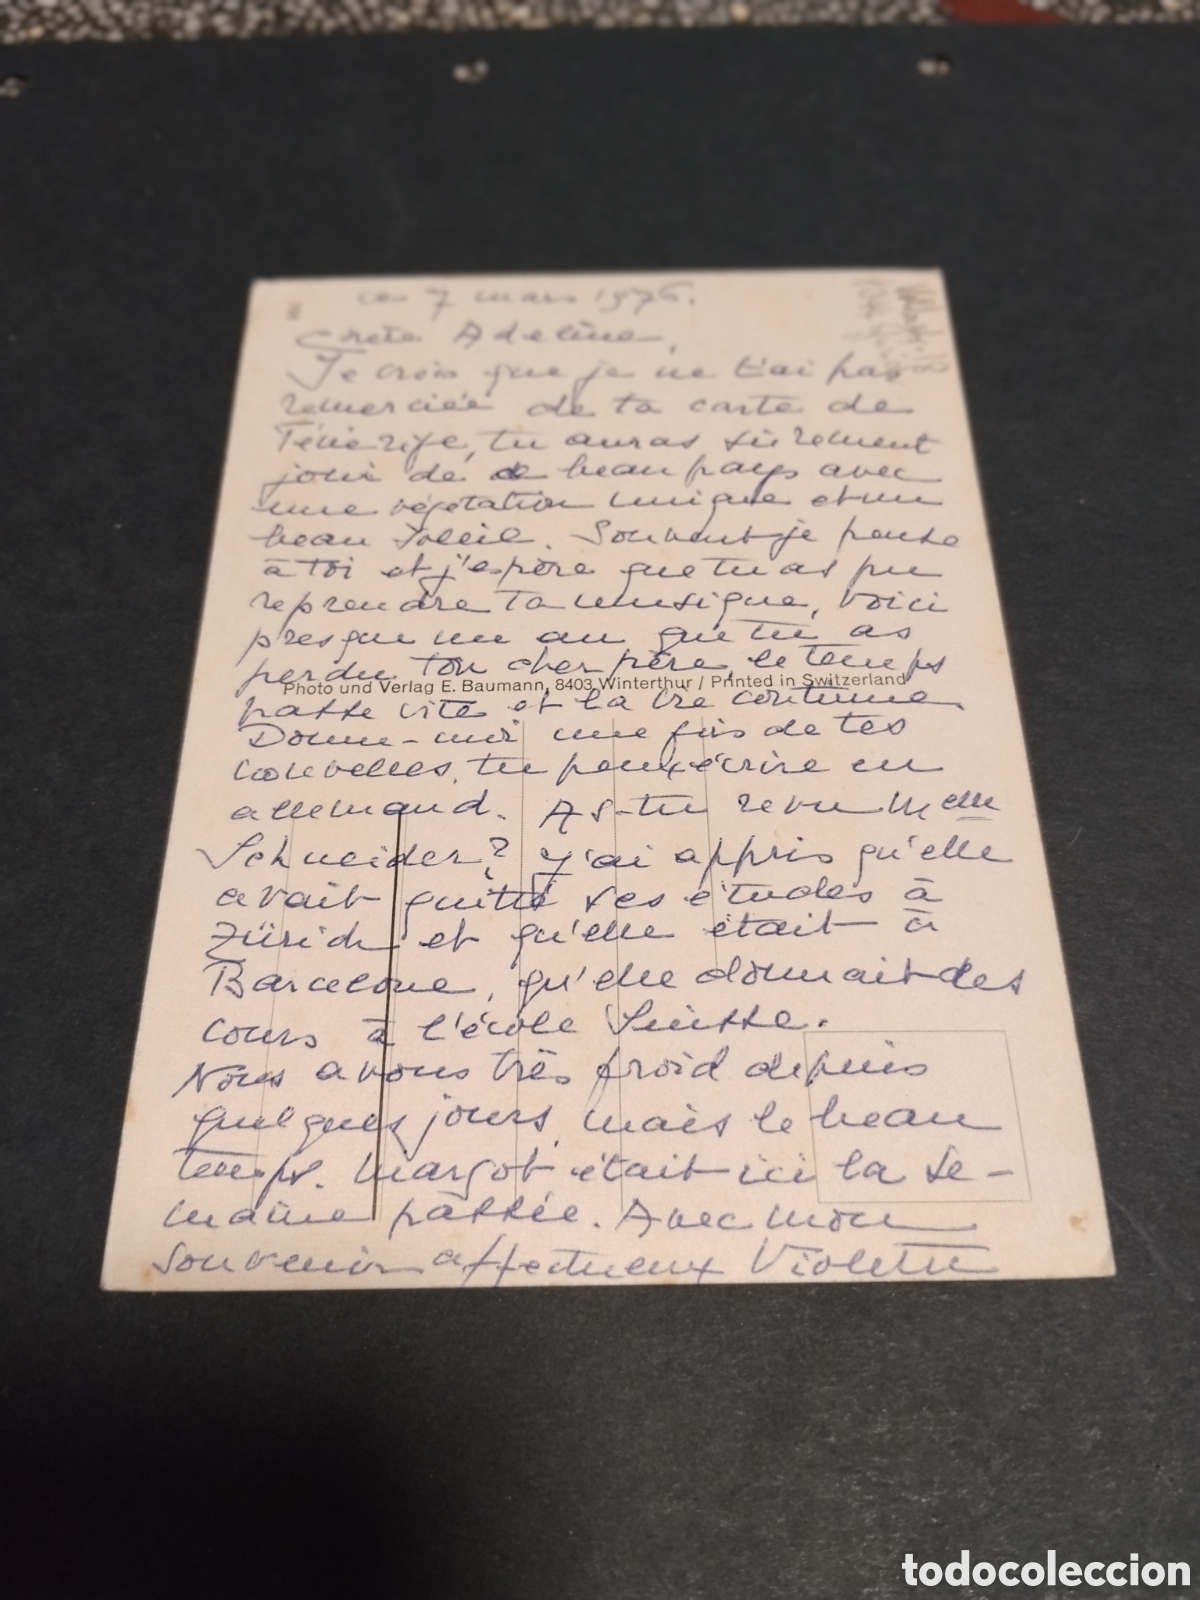 ce 7 mars 1976.
Chère Adeline,
Je crois que je ne t'ai pas
remerciée de ta carte de
Ténérife, tu auras sûrement
joui de ce beau pays avec
une végétation unique et un
beau soleil. Souvent je pense
à toi et j'espère que tu as pu
reprendre ta musique, voici
presqu un an que tu as
perdu ton cher père, le temps
Photo und Verlag E. Baumann, 8403 Winterthur / Printed in Switzerland
passe vite et la vie continue.
Donne-moi une fois de tes
nouvelles, tu peux écrire en
allemand. As-tu revu Melle
Schneider? J'ai appris qu'elle
avait quitté ses études à
Zürich et qu'elle était à
Barcelone, qu'elle donnait des
cours à l'école Suisse.
Nous avons très froid depuis
quelques jours, mais le beau
temps. Margot était ici la se-
maine passée. Avec mon
souvenir affectueux Violette
todocoleccion